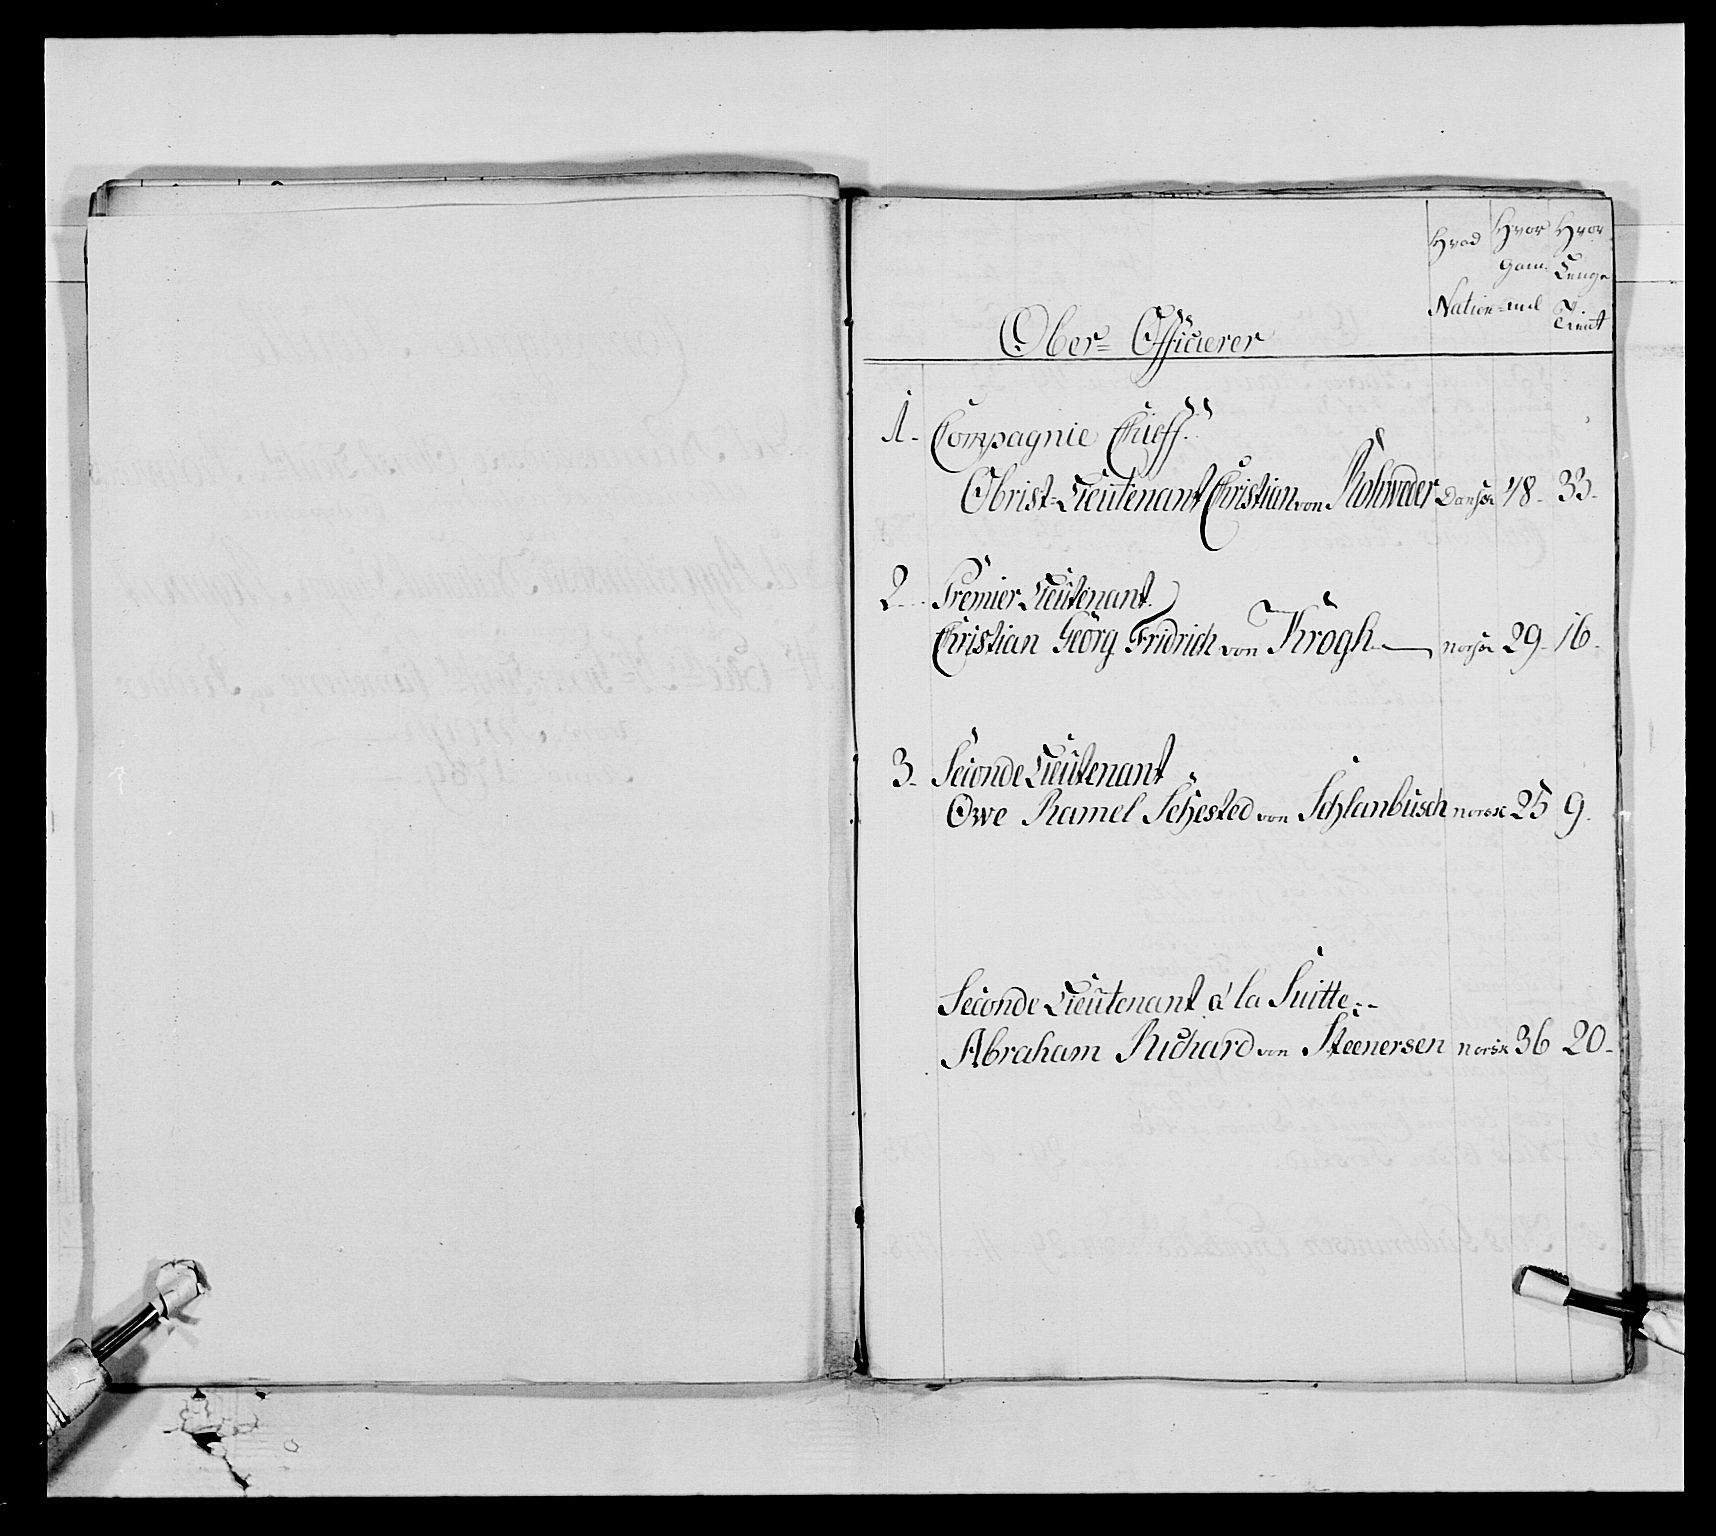 Hvad Hvor Hvor
Gam- Lenge
Nation -mel Tient
Ober- Officierer
1. Compagnie Chieff.
Obrist-Lieutenant Christian von Rohweder Dansk 48. 33.
2. Premier Lieutenant.
Christian Georg Fridrich von Krogh norsk 29. 16.
3. Seconde Lieutenant
Owe Ramel Sehested von Schlanbusch norsk 25 9.
Seconde Lieutenant a' la Suitte:-
Abraham Richard von Steenersen norsk 36 20.